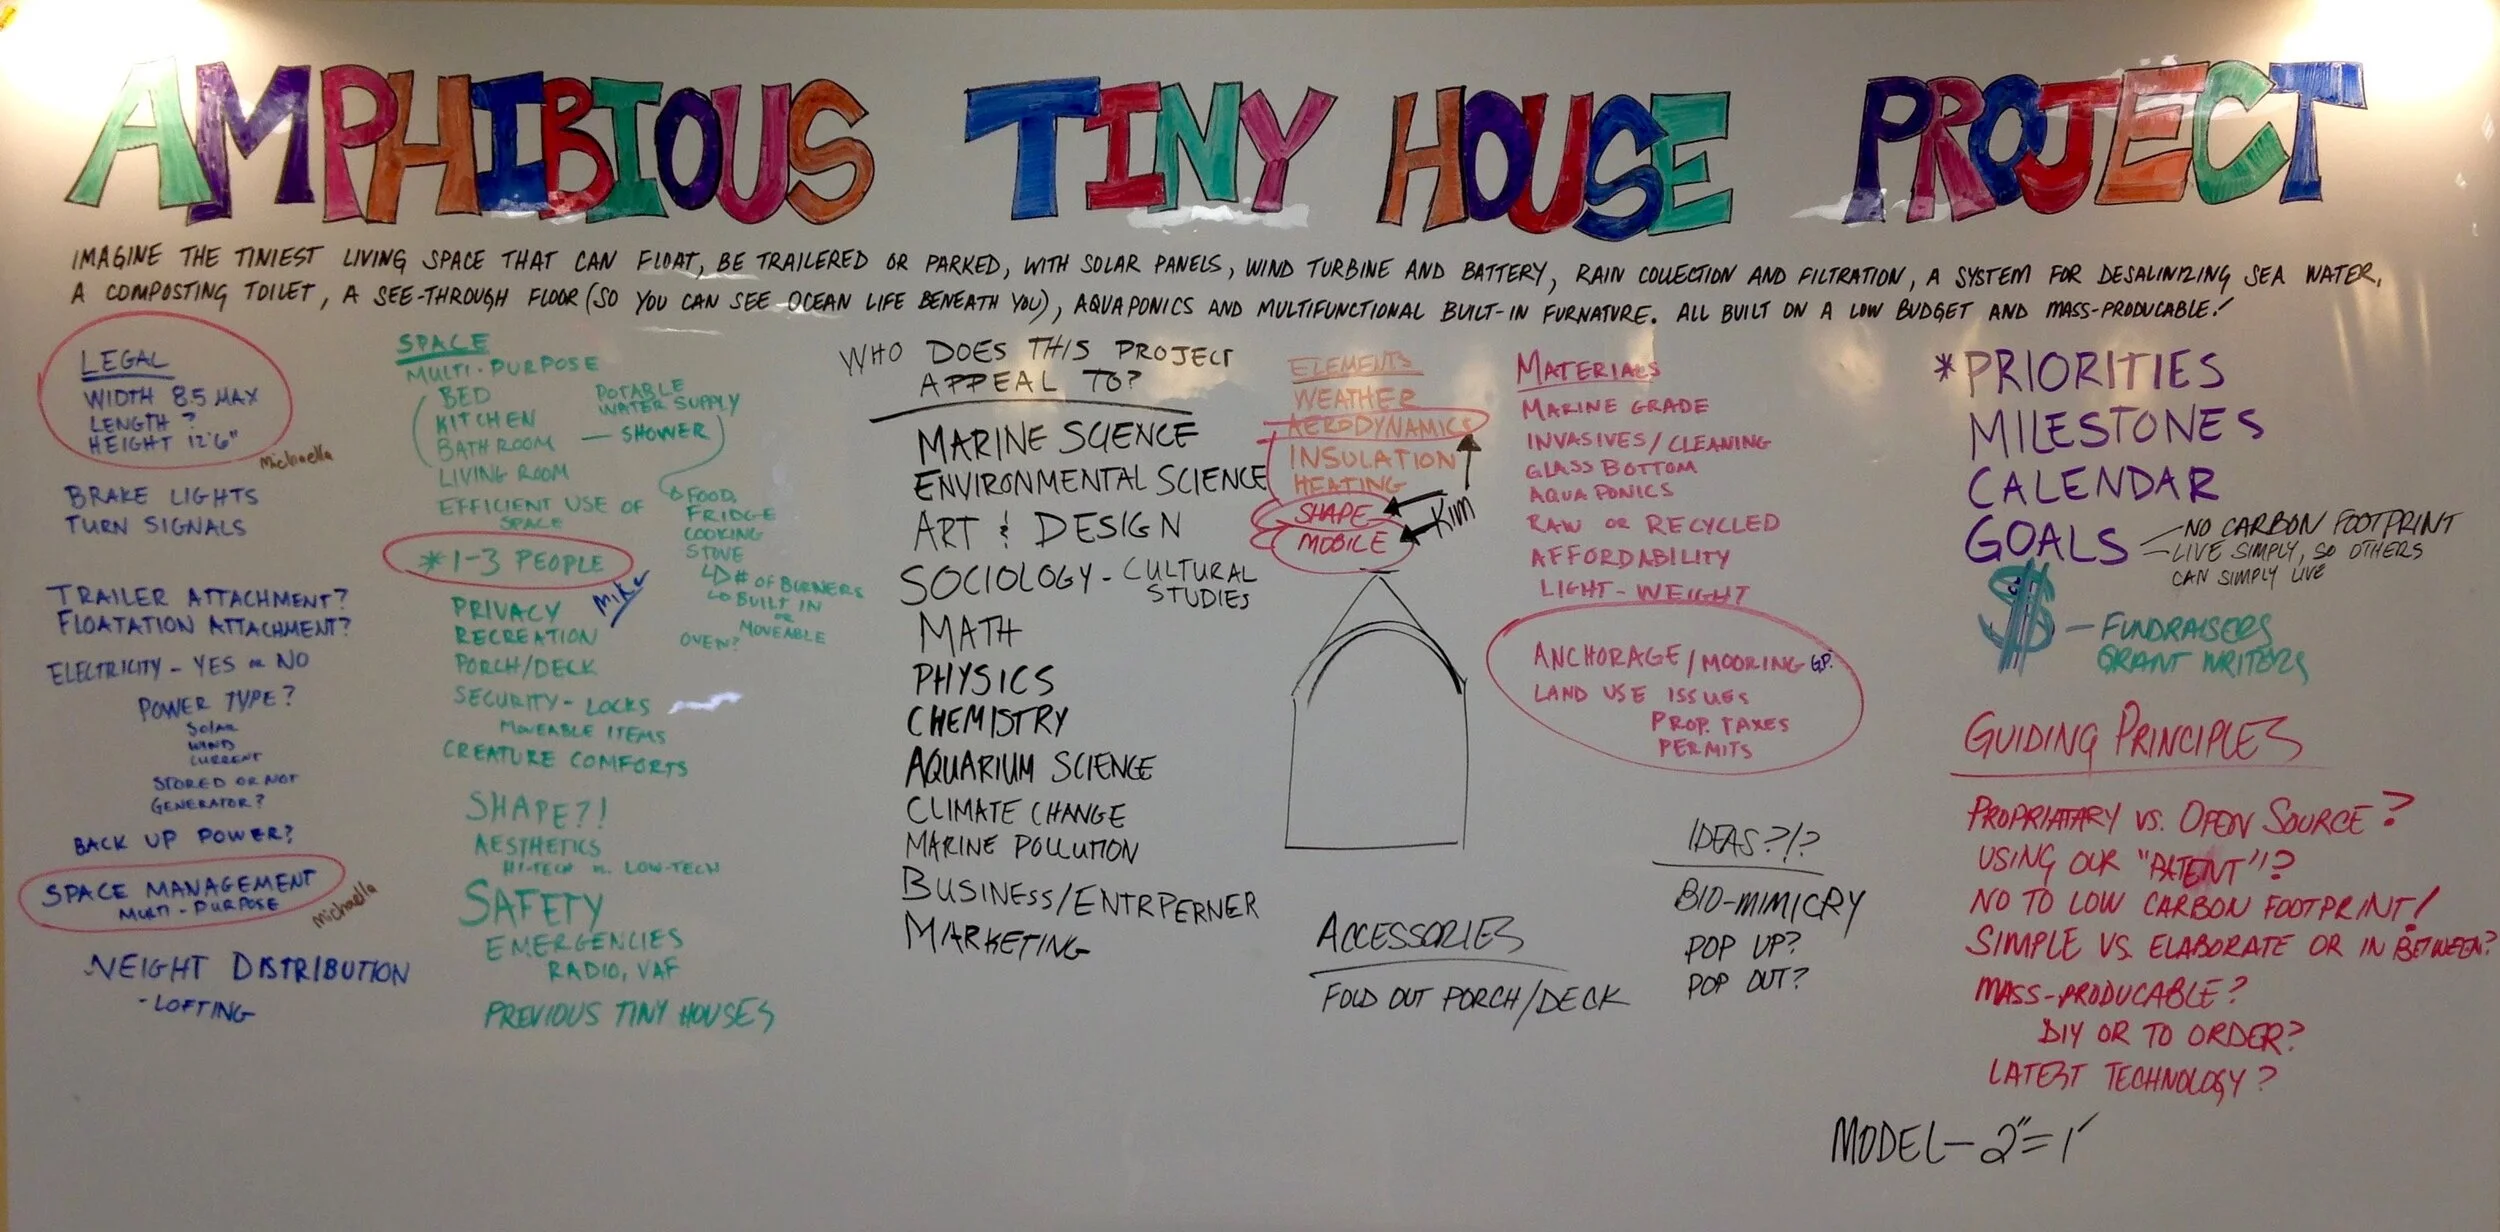 AMPHIBIOUS TINY HOUSE PROJECT
IMAGINE THE TINIEST LIVING SPACE THAT CAN FLOAT, BE TRAILERED OR PARKED, WITH SOLAR PANELS, WIND TURBINE AND BATTERY, RAIN COLLECTION AND FILTRATION, A SYSTEM FOR DESALINIZING SEA WATER,
A COMPOSTING TOILET, A SEE-THROUGH FLOOR (SO YOU CAN SEE OCEAN LIFE BENEATH YOU), AQUAPONICS AND MULTIFUNCTIONAL BUILT-IN FURNATURE. ALL BUILT ON A LOW BUDGET AND MASS-PRODUCABLE!
LEGAL
WIDTH 8.5 MAX
LENGTH ?
HEIGHT 12'6"
Michaella
BRAKE LIGHTS
TURN SIGNALS
TRAILER ATTACHMENT?
FLOATATION ATTACHMENT?
ELECTRICITY - YES OR NO
POWER TYPE?
SOLAR
WIND
CURRENT
STORED OR NOT
GENERATOR?
BACK UP POWER?
SPACE MANAGEMENT
MULTI-PURPOSE
Michaella
WEIGHT DISTRIBUTION
- LOFTING
SPACE
MULTI-PURPOSE
BED
KITCHEN
BATHROOM
LIVING ROOM
EFFICIENT USE OF
SPACE
POTABLE
WATER SUPPLY
— SHOWER
FOOD,
FRIDGE
COOKING
STOVE
# OF BURNERS
BUILT IN
OR
MOVEABLE
OVEN?
*1-3 PEOPLE
MIKE
PRIVACY
RECREATION
PORCH/DECK
SECURITY - LOCKS
MOVEABLE ITEMS
CREATURE COMFORTS
SHAPE?!
AESTHETICS
HI-TECH vs. LOW-TECH
SAFETY
EMERGENCIES
RADIO, VAF
PREVIOUS TINY HOUSES
WHO DOES THIS PROJECT
APPEAL TO?
MARINE SCIENCE
ENVIRONMENTAL SCIENCE
ART & DESIGN
SOCIOLOGY - CULTURAL
STUDIES
MATH
PHYSICS
CHEMISTRY
AQUARIUM SCIENCE
CLIMATE CHANGE
MARINE POLLUTION
BUSINESS/ENTRPERNER
MARKETING
ELEMENTS
WEATHER
AERODYNAMICS
INSULATION
HEATING
SHAPE
MOBILE
KIM
ACCESSORIES
FOLD OUT PORCH/DECK
MATERIALS
MARINE GRADE
INVASIVES/CLEANING
GLASS BOTTOM
AQUAPONICS
RAW OR RECYCLED
AFFORDABILITY
LIGHT-WEIGHT
ANCHORAGE/MOORING G.P.
LAND USE ISSUES
PROP. TAXES
PERMITS
IDEAS?!?
BIO-MIMICRY
POP UP?
POP OUT?
*PRIORITIES
MILESTONES
CALENDAR
GOALS
— NO CARBON FOOTPRINT
— LIVE SIMPLY, SO OTHERS
CAN SIMPLY LIVE
$ — FUNDRAISERS
GRANT WRITERS
GUIDING PRINCIPLES
PROPRIATARY VS. OPEN SOURCE?
USING OUR "PATENT"?
NO TO LOW CARBON FOOTPRINT!
SIMPLE VS. ELABORATE OR IN BETWEEN?
MASS-PRODUCABLE?
DIY OR TO ORDER?
LATEST TECHNOLOGY?
MODEL — 2"=1'